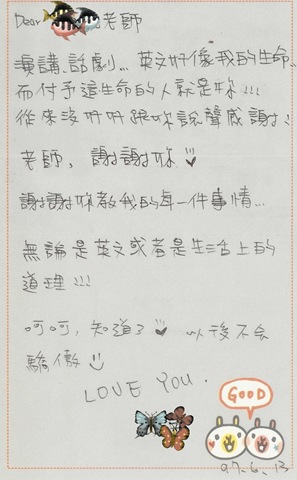 Dear 老師
演講、話劇... 英文好像我的生命..
而付予這生命的人就是妳!!!
從來沒好好跟妳說聲感謝!
老師, 謝謝妳
謝謝妳教我的每一件事情...
無論是英文或者是生活上的
道理!!!
呵呵, 知道了♥ 以後不会
驕傲
LOVE YOU.
GOOD
97.6.13